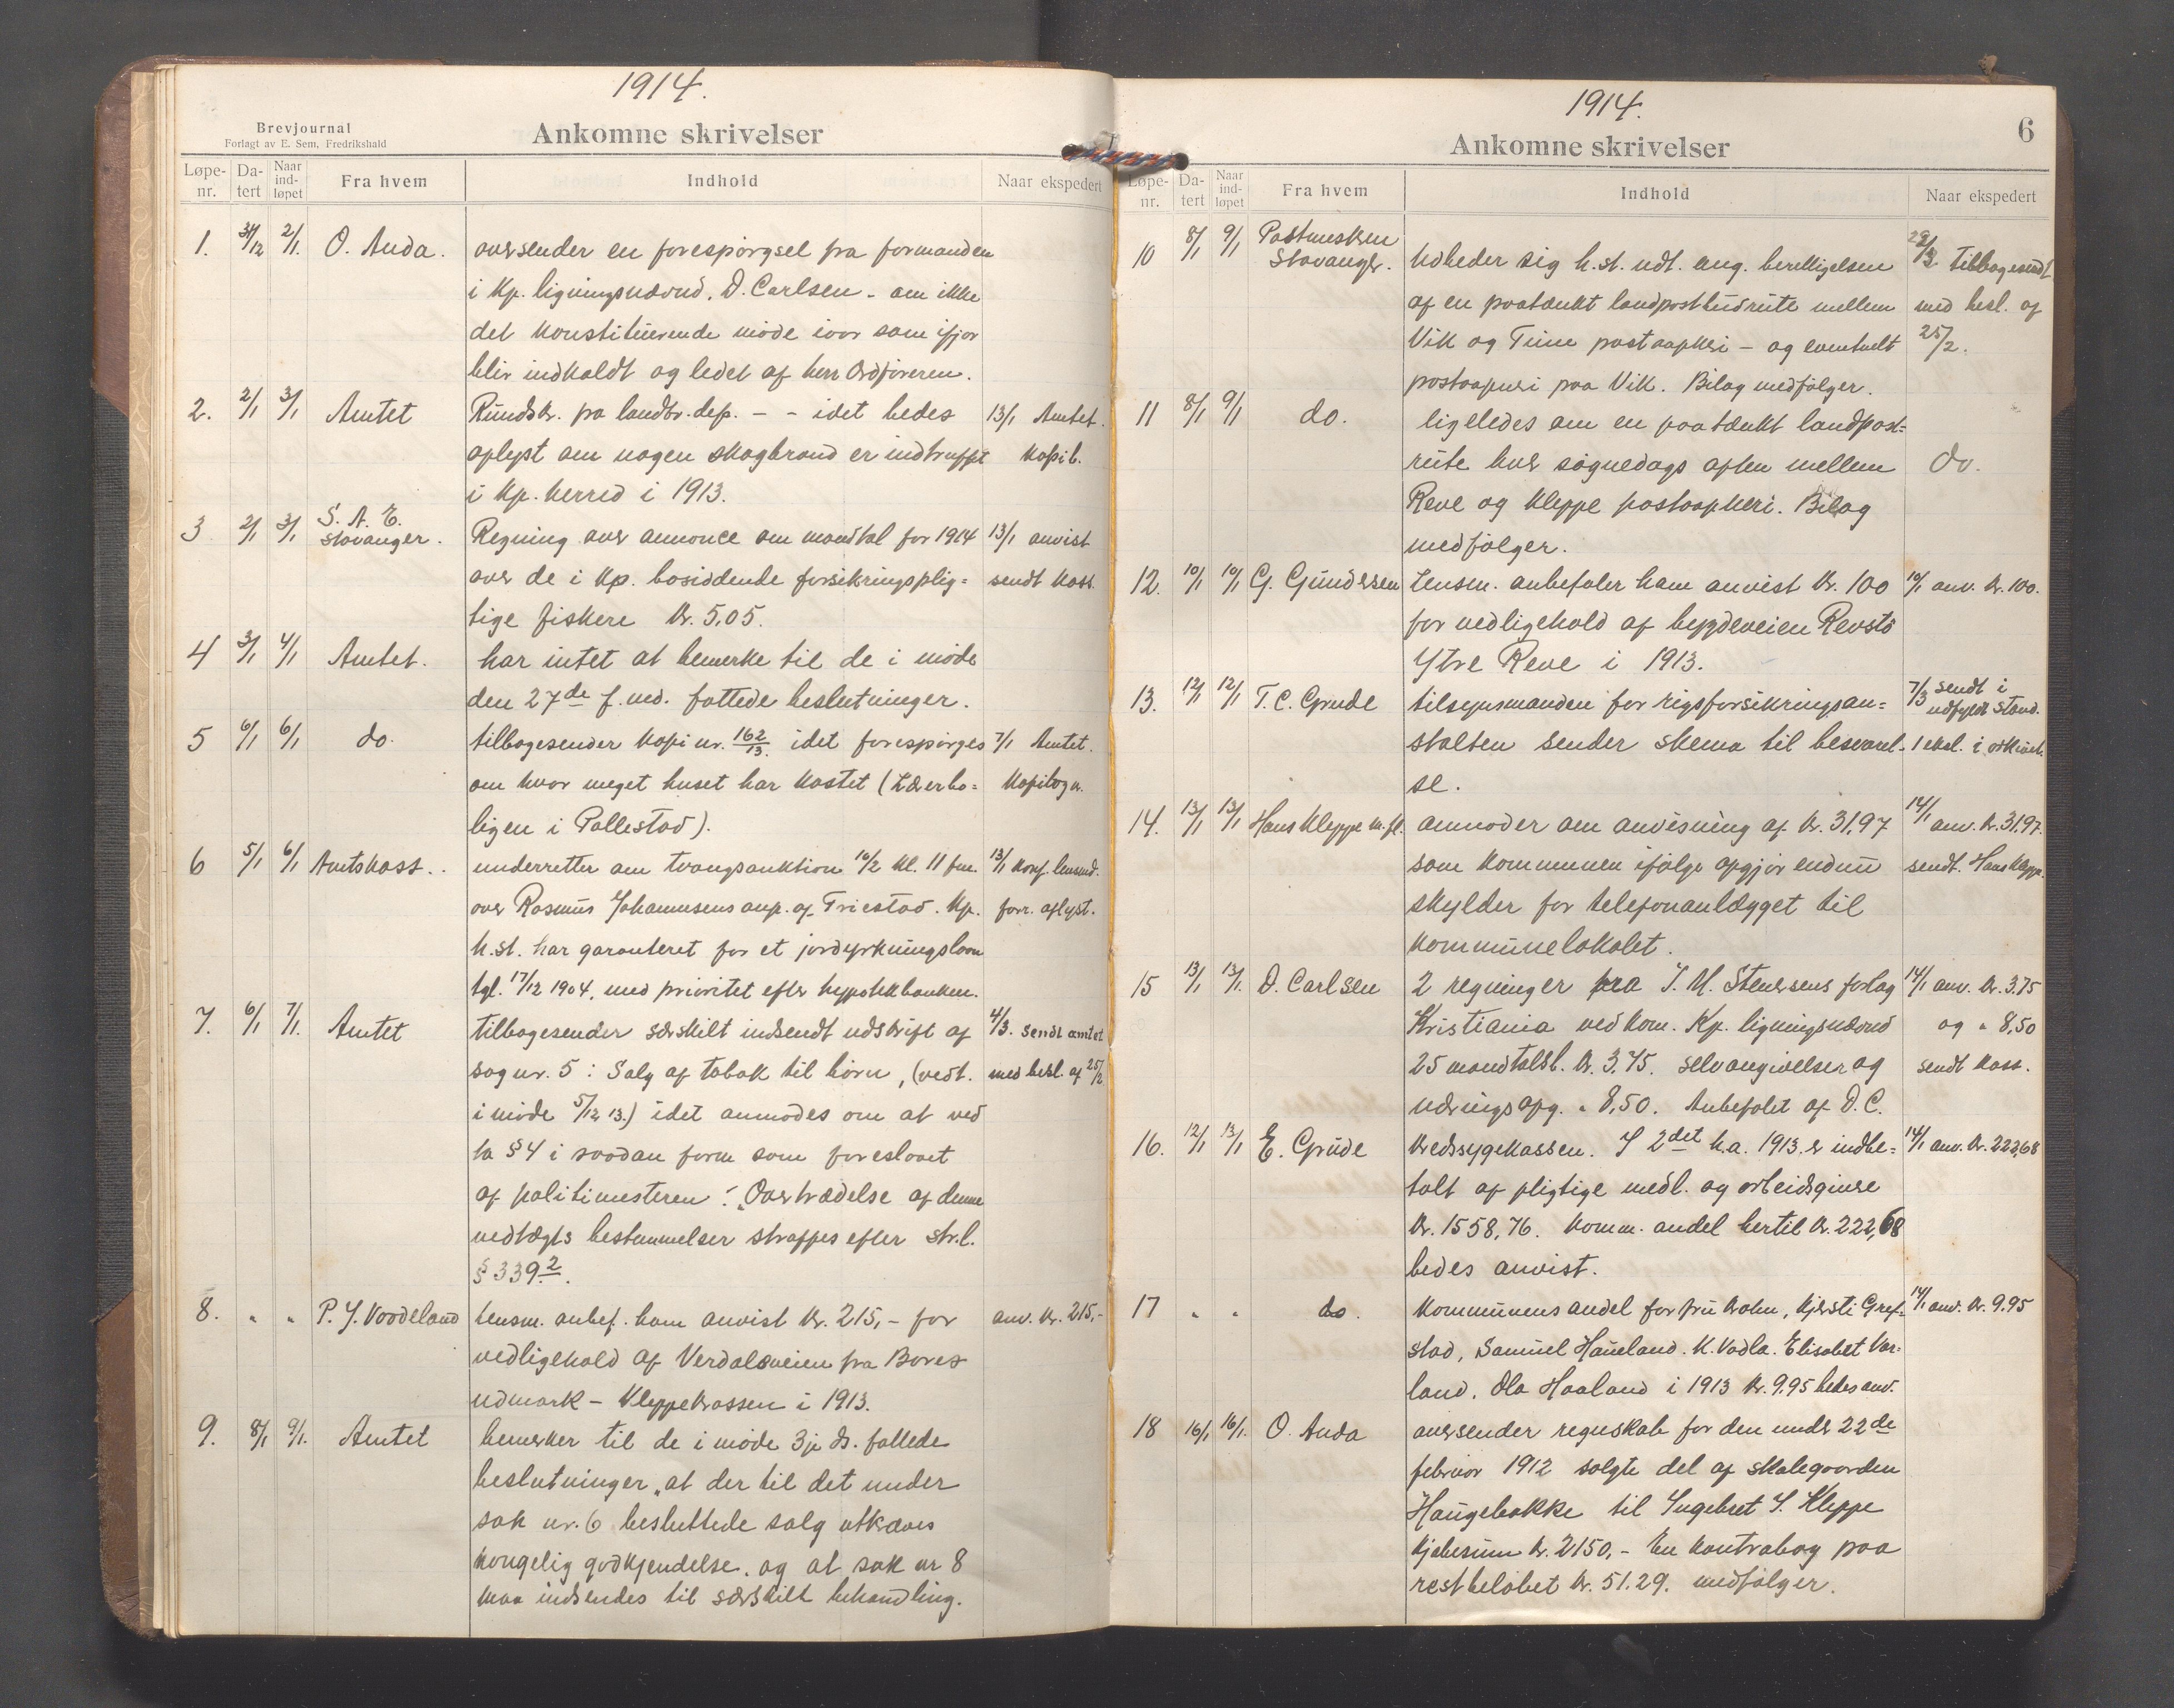 1914.
Brevjournal
Forlagt av E. Sem, Fredrikshald
Ankomne skrivelser
Løpe-nr. Da-tert Naar ind-løpet Fra hvem Indhold Naar ekspedert
1. 31/12 2/1. O. Anda. oversender en forespørgsel fra formanden
i Kp. ligningsnævnd, D. Carlsen - om ikke
det konstituerende møde iaar som ifjor
blir indkaldt og ledet af herr Ordføreren.
2. 2/1 3/1 Amtet Rundskr. fra landbr. dep. - - idet bedes 13/1 Amtet.
oplyst om nogen skogbrand er indtruffet Kopib.
i Kp. herred i 1913.
3 2/1 3/1 S. A. E. Stavanger. Regning over annonce om mandtal for 1914 13/1 anvist
over de i Kp. bosiddende forsikringsplig= sendt kass.
tige fiskere Kr. 5,05.
4 3/1 4/1 Amtet. har intet at bemerke til de i møde
den 27de f. md. fattede beslutninger.
5 6/1 6/1 do. tilbagesender kopi nr. 162/13. idet forespørges 7/1 Amtet.
om hvor meget huset har kostet (Lærerbo= Kopibog
ligen i Pollestad).
6 5/1 6/1 Amtskass.. underretter om tvangsauktion 10/2 kl. 11 fm. 13/1 konf. lensmd.
over Rasmus Johannesens anp. af Friestad. Kp. forr. aflyst.
h.st. har garanteret for et jordyrkningslaan
tgl. 17/12 1904, med prioritet efter hypotekbanken.
7. 6/1 7/1. Amtet tilbagesender særskilt indsendt udskrift af 4/3. sendt amtet
sag nr. 5: Salg af tobak til børn, (vedt. med besl. af 25/2
i møde 5/12 13.) idet anmodes om at ved
ta § 4 i saadan form som foreslaaet
af politimesteren: "Overtrædelse af denne
vedtægts bestemmelser straffes efter str.l.
§ 339.2.
8. " " P. J. Voodeland Lensm. anbef. ham anvist Kr. 215,- for anv. Kr. 215,-
vedligehold af Verdalsveien fra Bores
udmark - Kleppekrossen i 1913.
9. 8/1 9/1. Amtet bemerker til de i møde 3je ds. fattede
beslutninger "at der til det under
sak nr. 6 besluttede salg utkræves
kongelig godkjendelse, og at sak nr 8
maa indsendes til særskilt behandling.
1914.
Ankomne skrivelser
6
Løpe-nr. Da-tert Naar ind-løpet Fra hvem Indhold Naar ekspedert
10 8/1 9/1 Postmesteren Stavanger. Udbeder sig h.st. udt. ang. berettigelsen 28/2 tilbagesendt
af en paatænkt landpostbudrute mellem med besl. af
Vik og Time postaapneri - og eventuelt 25/2.
postaapneri paa Vik. Bilag medfølger.
11 8/1 9/1 do. ligeledes om en paatænkt landpost=
rute hver søgnedags aften mellem do.
Reve og Kleppe postaapneri. Bilag
medfølger.
12. 10/1 10/1 G. Gundersen Lensm. anbefaler ham anvist Kr. 100 10/1 anv. Kr. 100.
for vedligehold af bygdeveien Revstø
Ytre Reve i 1913.
13. 12/1 12/1 T. C. Grude tilsynsmanden for rigsforsikringsan= 7/3 sendt i udfyldt stand.
stalten sender skema til besvarel- 1 eksl. i arkivet.
se.
14. 13/1 13/1 Hans Kleppe m.fl. anmoder om anvisning af Kr. 31,97 14/1 anv. Kr. 31,97.
som kommunen ifølge opgjør endnu sendt. Hans Kleppe.
skylder for telefonanlægget til
kommunelokalet.
15 13/1 13/1. D. Carlsen 2 regninger fra J. M. Stenersens forlag 14/1 anv. Kr. 3.75
Kristiania vedkom. Kp. ligningsnævnd og " 8,50
25 mandtalsl. Kr. 3,75. selvangivelser og sendt kass.
næringsopg. " 8,50. Anbefalet af D.C.
16. 12/1 13/1 E. Grude Kredssygekassen. I 2det h.a. 1913. er indbe= 14/1 anv. Kr. 222,68
talt af pligtige medl. og arbeidsgivere
Kr. 1558,76. Komm. andel hertil Kr. 222,68
bedes anvist.
17 " " do. Kommunens andel for fru Krohn, Kjersti Gref- 14/1 anv. Kr. 9.95
stad, Samuel Haueland. K. Vadla. Elisabet Var=
land. Ola Haaland i 1913 Kr. 9,95 bedes anv.
18 16/1 16/1. O. Anda oversender regnskab for den under 22de
februar 1912 solgte del af skolegaarden
Haugebakke til Ingebret S. Kleppe
kjøbesum Kr. 2150,- En kontrabog paa
restbeløbet Kr. 51.29. medfølger.